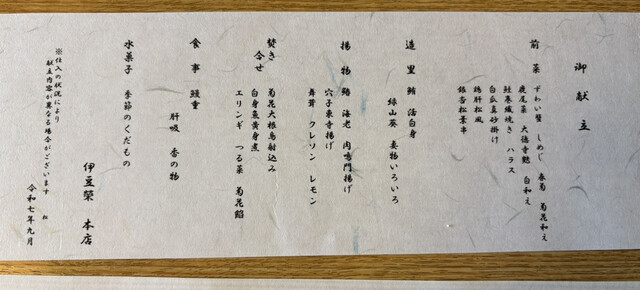 御献立
前菜 ずわい蟹 しめじ 春菊 菊花和え
鹿尾菜 大徳寺麩 白和え
鰻巻織焼き ハラス
白瓜直砂掛け
鶏肝松風
銀杏松葉串
造里 鮪 活白身
緑山葵 妻物いろいろ
揚物 鱚 海老 肉鳴門揚げ
穴子東寺揚げ
舞茸 クレソン レモン
焚き合せ 菊花大根鳥射込み
白身魚黄身煮
エリンギ つる菜 菊花餡
食事 鰻重
肝吸 香の物
水菓子 季節のくだもの
伊豆榮 本店
※仕入の状況により
献立内容が異なる場合がございます 松
令和七年九月